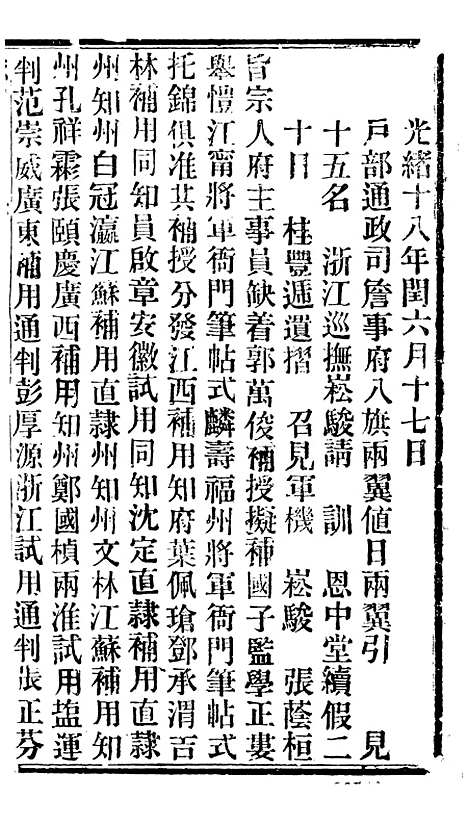 光緒十八年閏六月十七日
戶部通政司詹事府八旗兩翼值日兩翼引　見
十五名　浙江巡撫崧駿請　訓　恩中堂續假二
十日　桂豐遞遺摺　召見軍機　崧駿　張蔭桓
旨宗人府主事員缺着郭萬俊補授擬補國子監學正婁
舉愷江甯將軍衙門筆帖式麟壽福州將軍衙門筆帖式
托錦俱准其補授分發江西補用知府葉佩瑲鄧承渭吉
林補用同知員啟章安徽試用同知沈定直隸補用直隸
州知州白冠瀛江蘇補用直隸州知州文林江蘇補用知
州孔祥霖張頤慶廣西補用知州鄭國楨兩淮試用塩運
判范崇威廣東補用通判彭厚源浙江試用通判張正芬